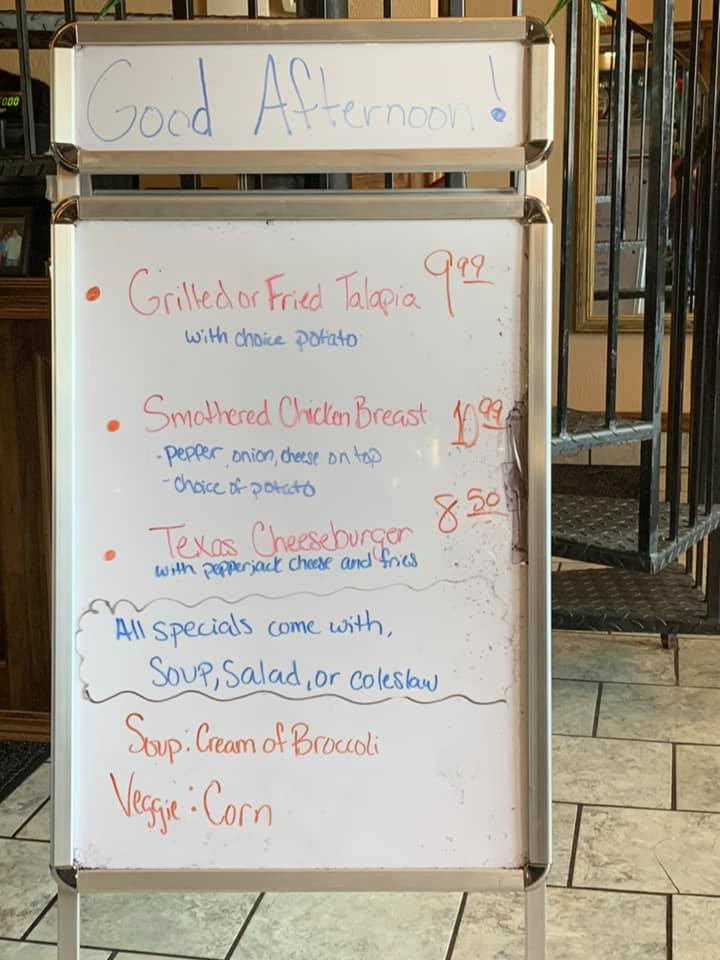 Good Afternoon!
• Grilled or Fried Talapia 9.99
with choice potato
• Smothered Chicken Breast 10.99
- pepper, onion, cheese on top
- choice of potato
• Texas Cheeseburger 8.50
with pepperjack cheese and fries
All specials come with,
Soup, Salad, or coleslaw
Soup: Cream of Broccoli
Veggie: Corn